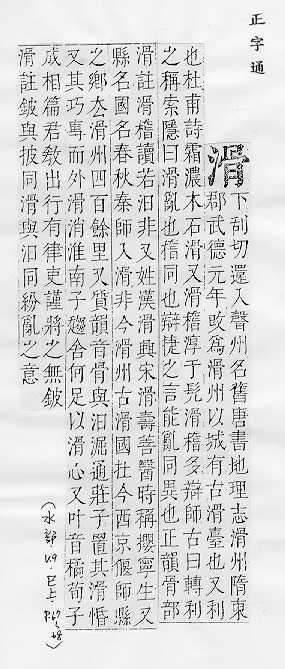 正字通
滑
下刮切還入聲州名舊唐書地理志滑州隋東
郡武德元年改爲滑州以城有古滑臺也又利
也杜甫詩霜濃木石滑又滑稽淳于髡滑稽多辯師古曰轉利
之稱索隱曰滑亂也稽同也辯捷之言能亂同異也正韻骨部
滑註滑稽讀若汨非又姓漢滑興宋滑壽善醫時稱攖寧生又
縣名國名春秋秦師入滑非今滑州古滑國在今西京偃師縣
之鄉去滑州四百餘里又質韻音骨與汨淈通莊子置其滑惛
又其巧專而外滑消淮南子趨舍何足以滑心又叶音橘荀子
成相篇君敎出行有律吏謹將之無鈹
滑註鈹與披同滑與汨同紛亂之意
(水部49.巳上.